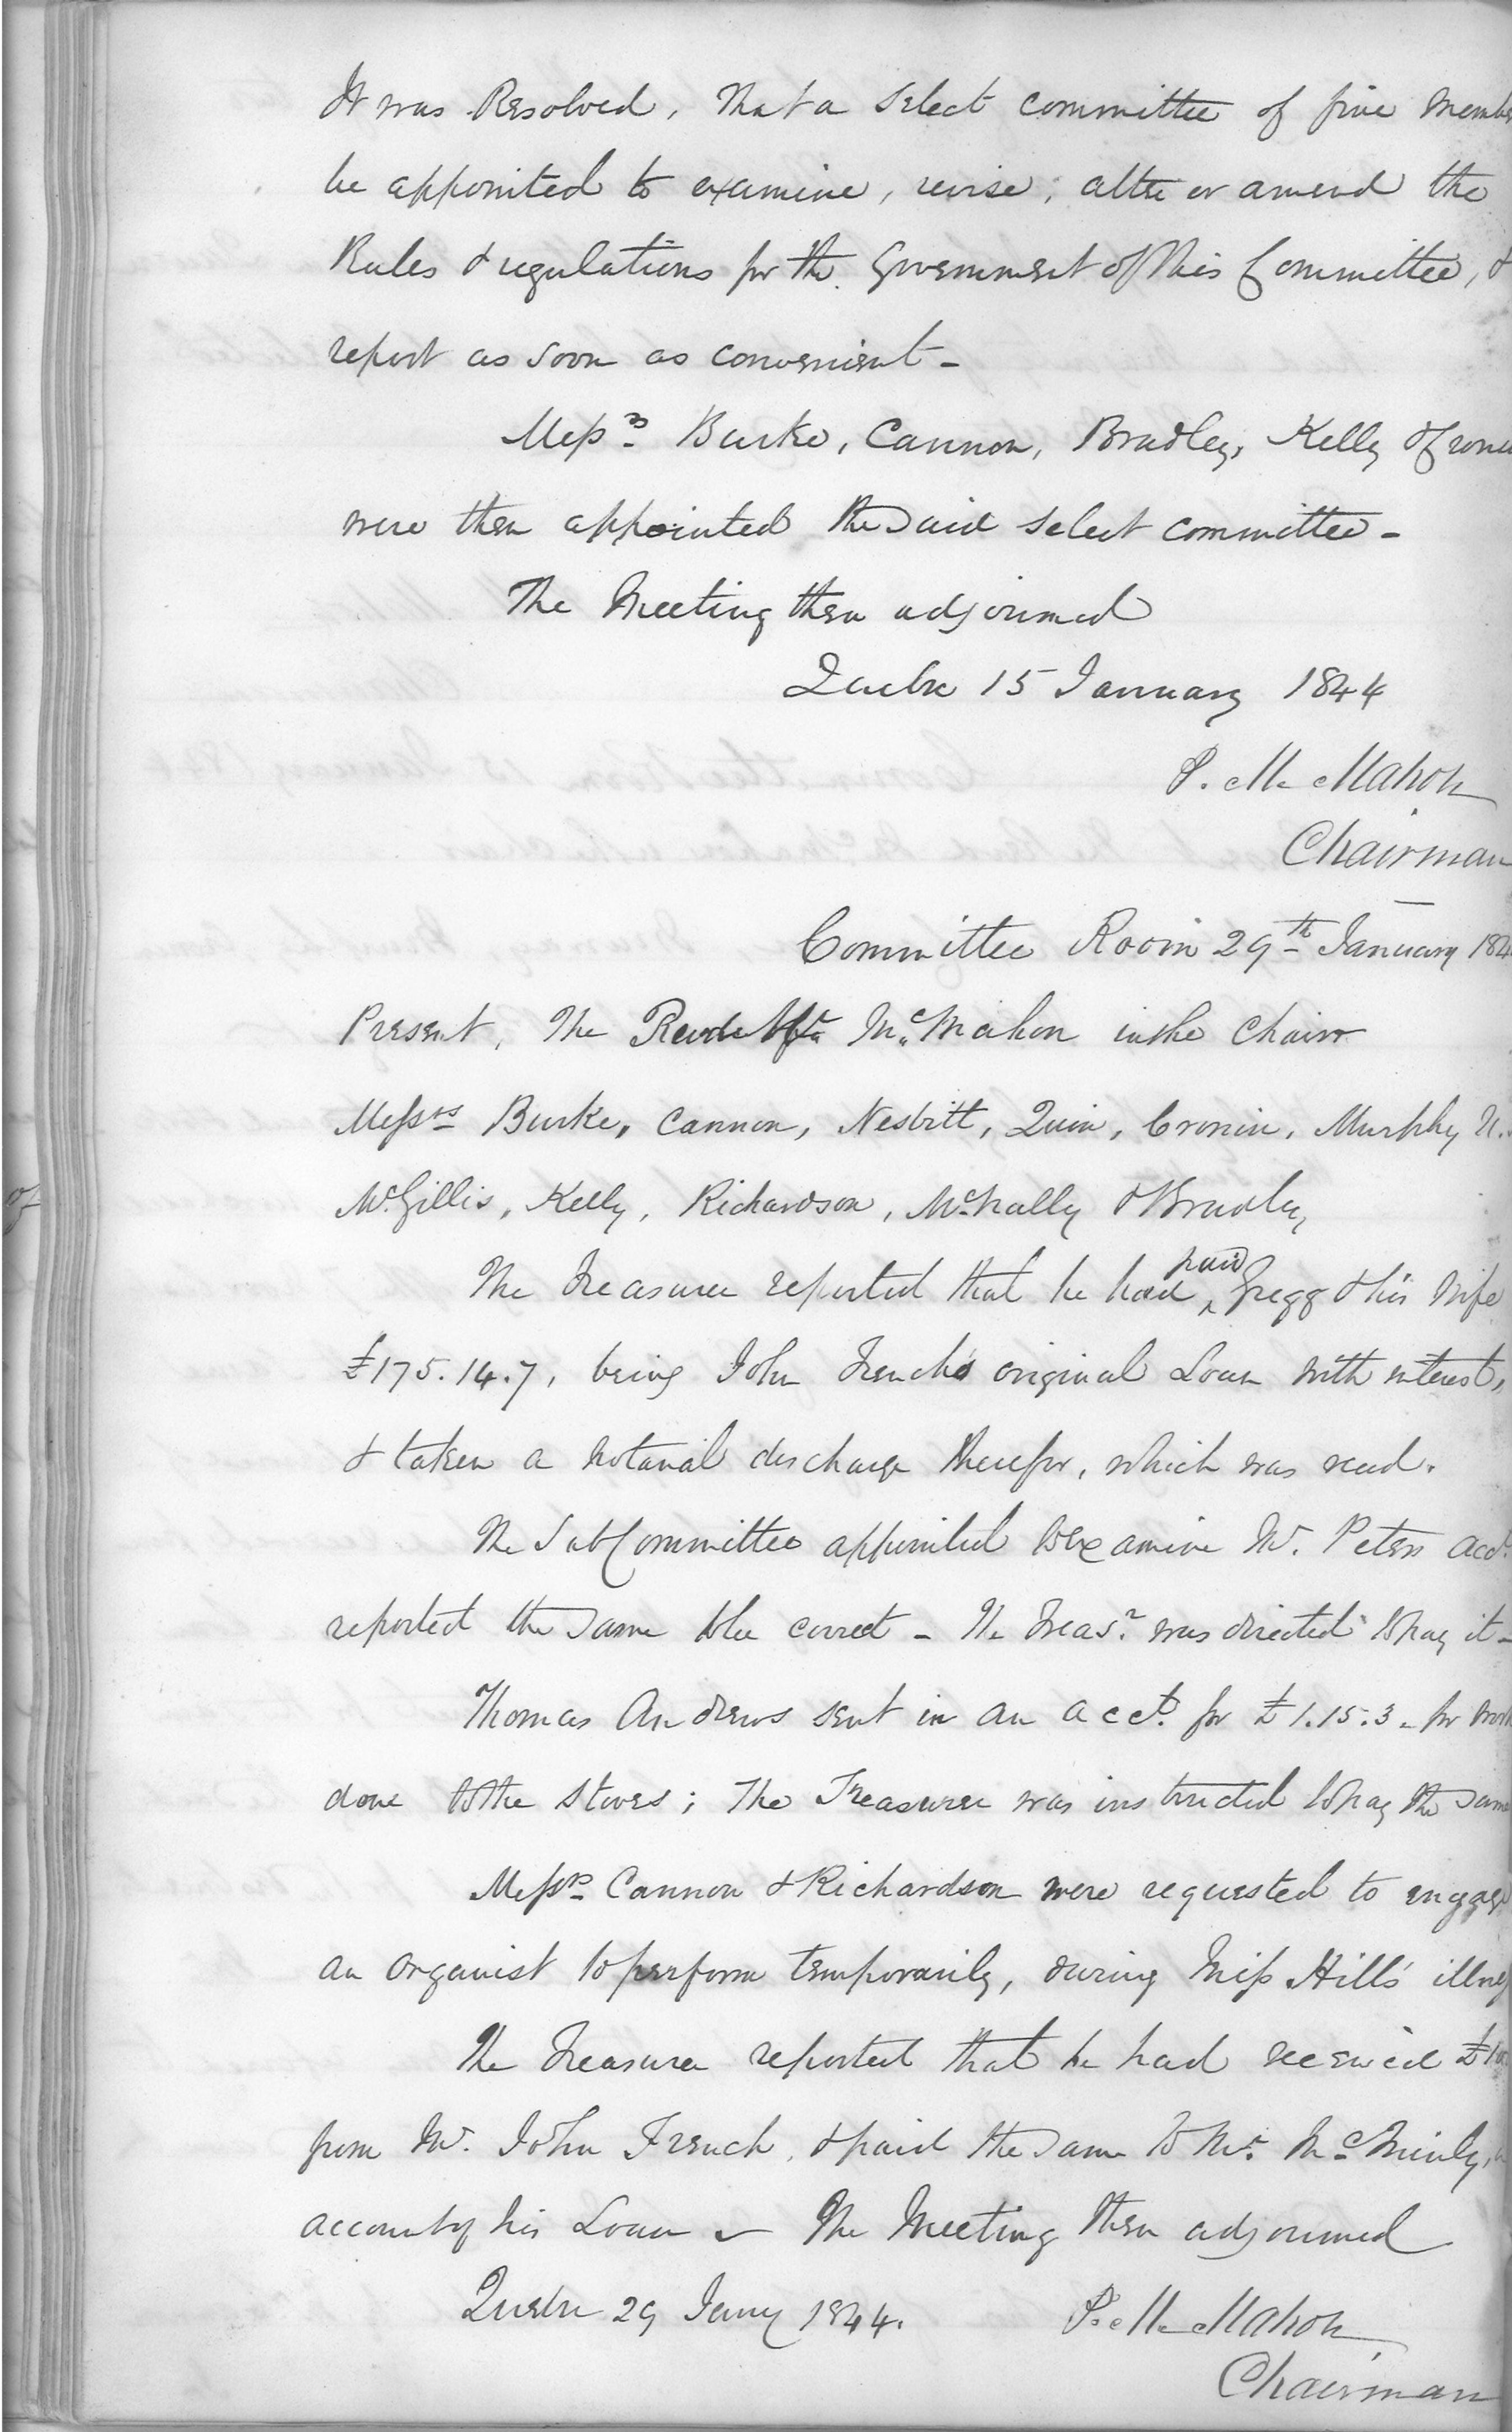 It was Resolved, That a Select committee of five Membe
be appointed to examine, revise, alter or amend the
Rules & regulations for the Government of this Committee, &
report as soon as convenient -
Messrs Burke, Cannon, Bradley, Kelly & Cronin
were then appointed the said select committee -
The Meeting then adjourned
Quebec 15 January 1844
P. McMahon
Chairman
Committee Room 29th January 184
Present, The Revd Mr McMahon in the Chair
Messrs Burke, Cannon, Nesbitt, Quin, Cronin, Murphy N.
McGillis, Kelly, Richardson, McNally & Bradley
The Treasurer reported that he had paid Gregg & his Wife
£175.14.7, being John French's original Loan with interest,
& taken a notarial discharge therefor, which was read.
The Sub Committee appointed to examine Mr. Peters acct.
reported the same to be correct - The Treasr. was directed to pay it -
Thomas Andrews sent in an acct. for £1.15.3 - for work
done to the Stoves; The Treasurer was instructed to pay the same
Messrs Cannon & Richardson were requested to engage
an organist to perform temporarily, during Miss Hill's illness
The Treasurer reported that he had received
from Mr. John French, & paid the same to Mr.
account of his Loan - The Meeting then adjourned
Quebec 29 Jany 1844.
P. McMahon
Chairman